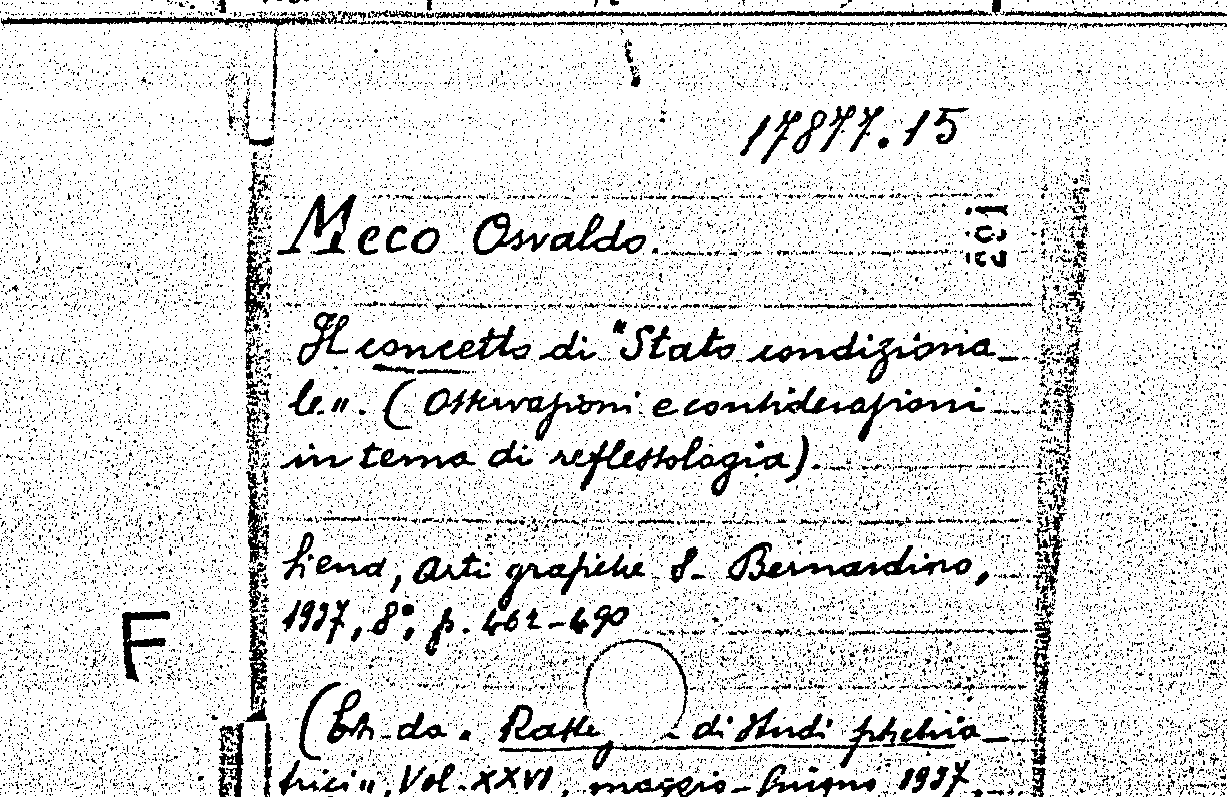 17877.15
Meco Osvaldo.
201
Il concetto di "Stato condiziona_
le". (Osservazioni e considerazioni
in tema di reflessologia).
Siena, Arti grafiche S. Bernardino,
1937, 8°, p. 462-490
F
(Estr. da "Rasseg di studi psichia_
trici", Vol. XXVI, maggio-Giugno 1937,